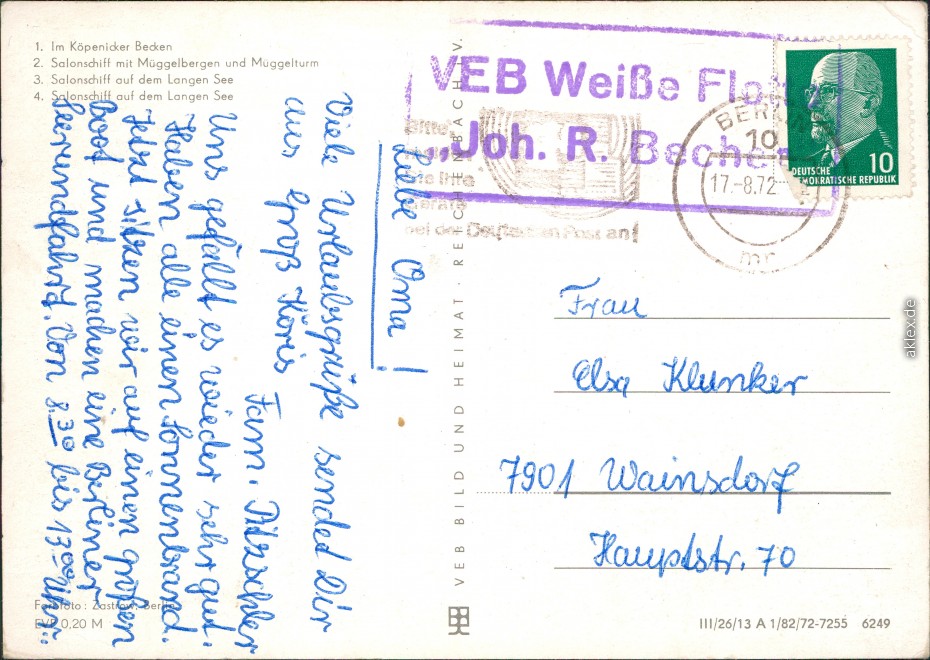 1. Im Köpenicker Becken
2. Salonschiff mit Müggelbergen und Müggelturm
3. Salonschiff auf dem Langen See
4. Salonschiff auf dem Langen See
Liebe Oma!
Viele Urlaubsgrüße sendet Dir
aus Groß Köris
Fam.
Uns gefällt es wieder sehr gut.
Haben alle einen Sonnenbrand.
Jetzt sitzen wir auf einen großen
Boot und machen eine Berliner
Seerundfahrt. Von 8.30 bis 13.00 Uhr.
Farbfoto: Zastrow, Berlin
EVP 0,20 M
VEB BILD UND HEIMAT · REICHENBACH V.
VEB Weiße Flotte
„Joh. R. Becher
Bitte
Ihre
Geräte
bei der Deutschen Post an!
BERLIN
10
17.-8.72
mr
10
DEUTSCHE
DEMOKRATISCHE REPUBLIK
Frau
Elsa Klunker
7901 Wainsdorf
Hauptstr. 70
III/26/13 A 1/82/72-7255 6249
aklex.de